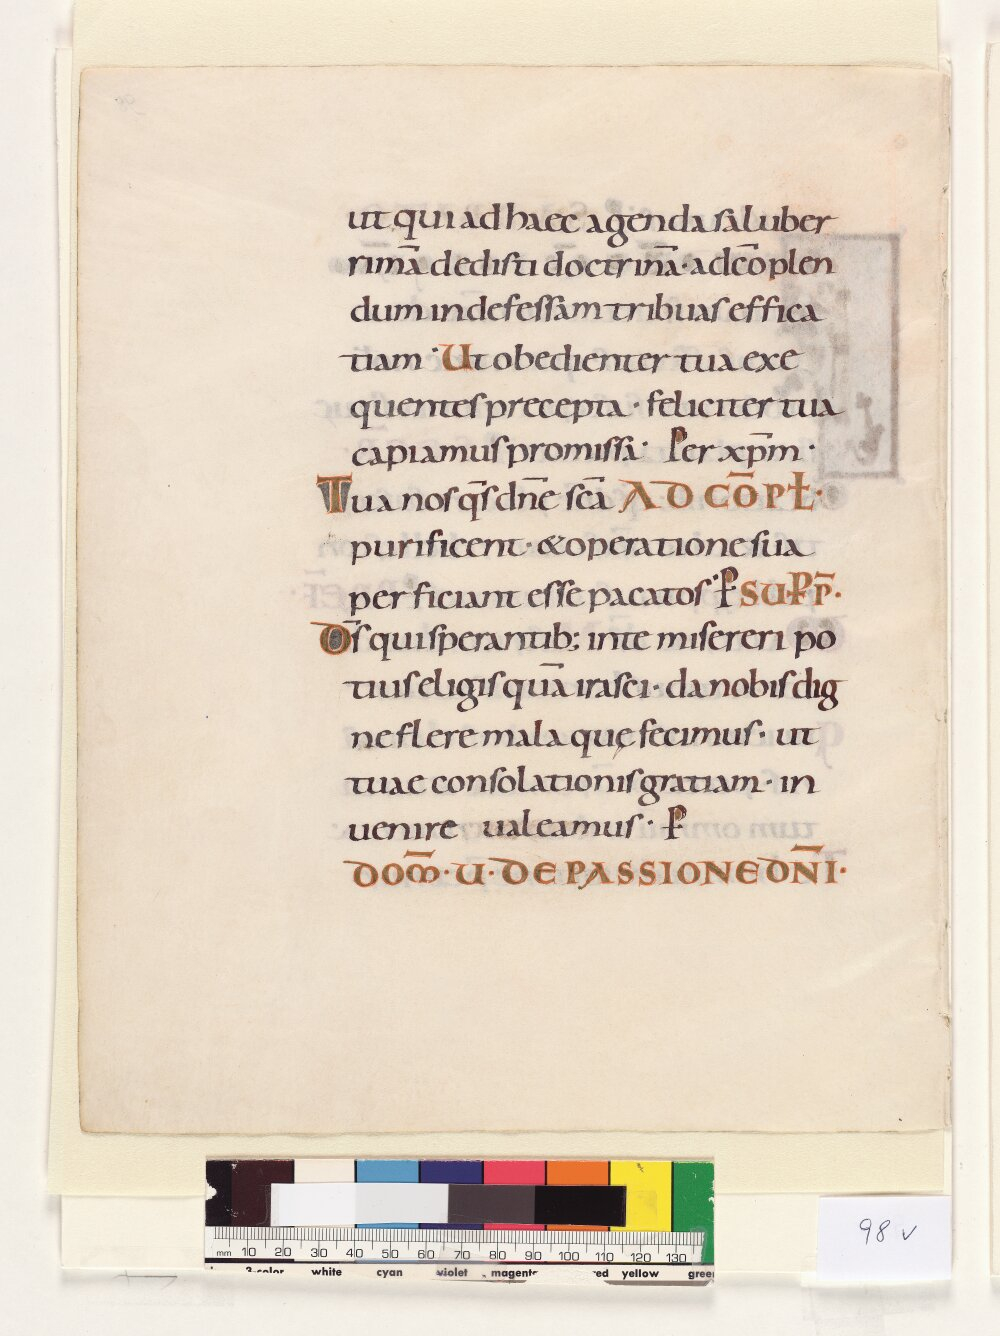 ut qui ad haec agenda saluber
rimā dedisti doctrinā· ad cōplen
dum indefessam tribuas effica
tiam· Ut obedienter tua exe
quentes precepta· feliciter tua
capiamus promissa· Per xp̄m·
Tua nos q̄s dn̄e sc̄a AD CŌPL̵·
purificent· & operatione sua
perficiant esse pacatos· P̵ SUP̵P̄·
D̄s qui sperantib; in te misereri po
tius eligis quā irasci· da nobis dig
ne flere mala quę fecimus· ut
tuae consolationis gratiam· in
uenire ualeamus· P̵
DOM̄·U·DE PASSIONE DN̄I·
98 v
mm 10 20 30 40 50 60 70 80 90 100 110 120 130
3-color white cyan violet magent red yellow gree